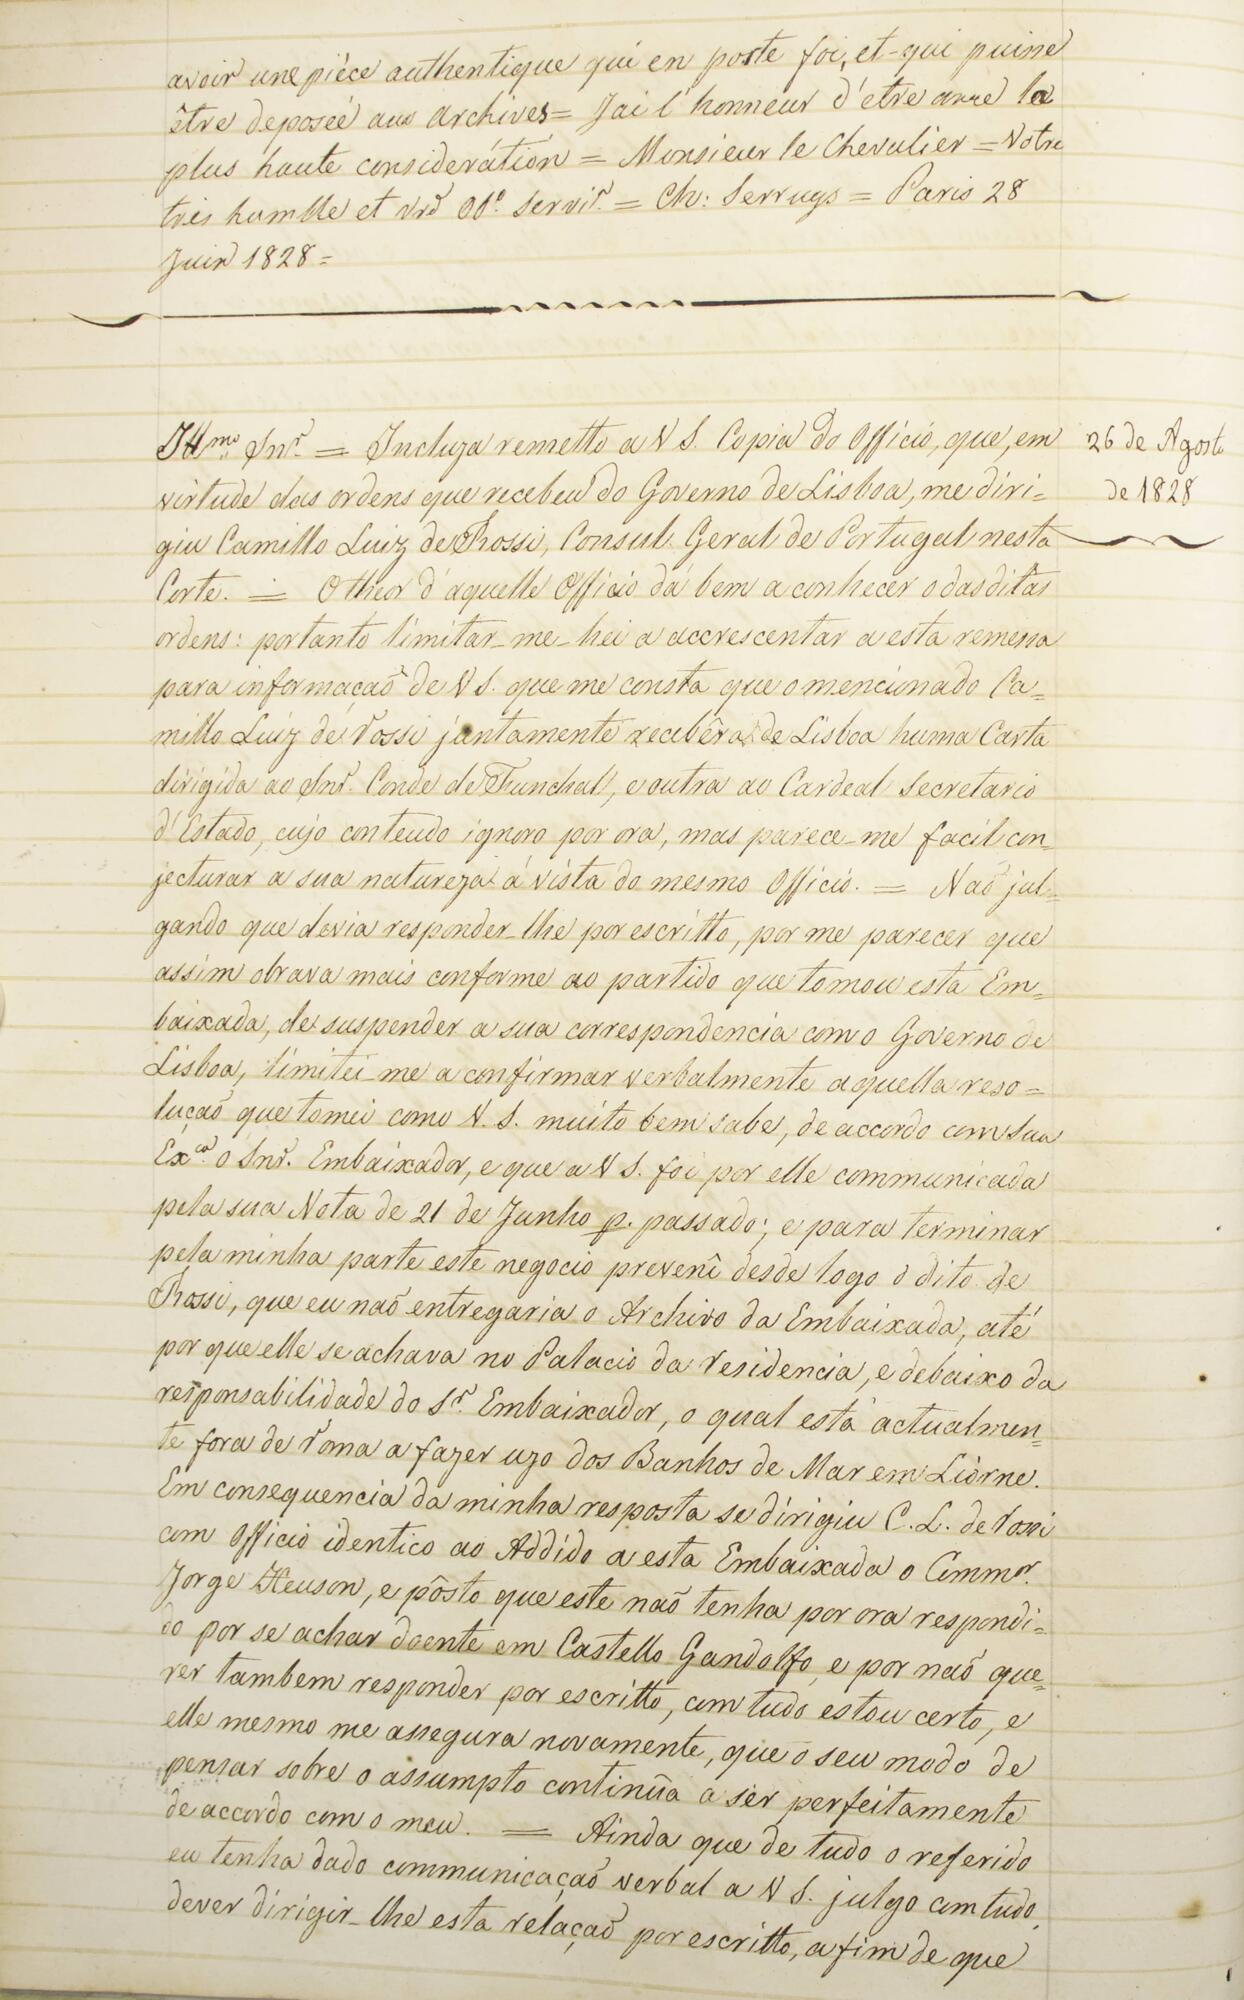 avoir une piéce authentique qui en poste foi, et qui puisse
être deposeé aux archives = Jai l'honneur d'etre avec la
plus haute considerátión = Monsieur le Chevalier = Votre
très humble et vrê Obe. Servir. = Ch: Serruys = Paris 28
Juin 1828 =
Illmo. Snr. = Incluza remetto a V S. Copia do Officio, que, em
26 de Agosto
virtude das ordens que recebeu do Governo de Lisboa, me diri=
de 1828
giu Camillo Luiz de Rossi, Consul Geral de Portugal nesta
Corte. = O theor d'aquelle Officio dá bem a conhecer o das ditas
ordens: portanto limitar-me-hei a accrescentar a esta remessa
para informaçaõ de V S. que me consta que o mencionado Ca=
millo Luiz de Rossi juntamente recebêra de Lisboa huma Carta
dirigida ao Snr. Conde de Funchal, e outra ao Cardeal Secretario
d'Estado, cujo conteudo ignoro por ora, mas parece-me facil con=
jecturar a sua natureza á vista do mesmo Officio. = Naõ jul=
gando que devia responder-lhe por escritto, por me parecer que
assim obrava mais conforme ao partido que tomou esta Em=
baixada, de suspender a sua correspondencia com o Governo de
Lisboa, limitei-me a confirmar verbalmente aquella reso=
luçaõ que tomei como V. S. muito bem sabe, de accordo com Sua
Exca. o Snr. Embaixador, e que a V S. foi por elle communicada
pela sua Nota de 21 de Junho p. passado; e para terminar
pela minha parte este negocio prevenî desde logo o dito de
Rossi, que eu naõ entregaria o Archivo da Embaixada, até
por que elle se achava no Palacio da residencia, e debaixo da
responsabilidade do Sr. Embaixador, o qual está actualmen=
te fora de Roma a fazer uzo dos Banhos de Mar em Liorne.
Em consequencia da minha resposta se dirigiu C. L. de Rossi
com Officio identico ao Addido a esta Embaixada o Commor.
Jorge Heuson, e pôsto que este naõ tenha por ora respondi=
do por se achar doente em Castello Gandolfo, e por naõ que=
rer tambem responder por escritto, com tudo estou certo, e
elle mesmo me assegura novamente, que o seu modo de
pensar sobre o assumpto continûa a ser perfeitamente
de accordo com o meu. = Ainda que de tudo o referido
eu tenha dado communicaçaõ verbal a V S. julgo com tudo
dever dirigir-lhe esta relaçaõ por escritto, a fim de que